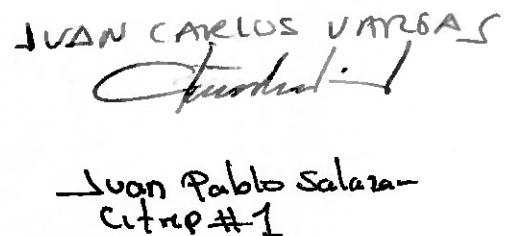 JUAN CARLOS VARGAS
Juan Pablo Salazar
#1